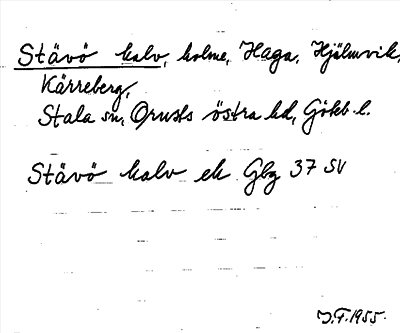 Stävö kalv, holme, Haga, Hjälmvik,
Kärreberg,
Stala sn, Orusts östra hd, Götebl.
Stävö kalv ek Gbg 37 SV
J.F. 1955.